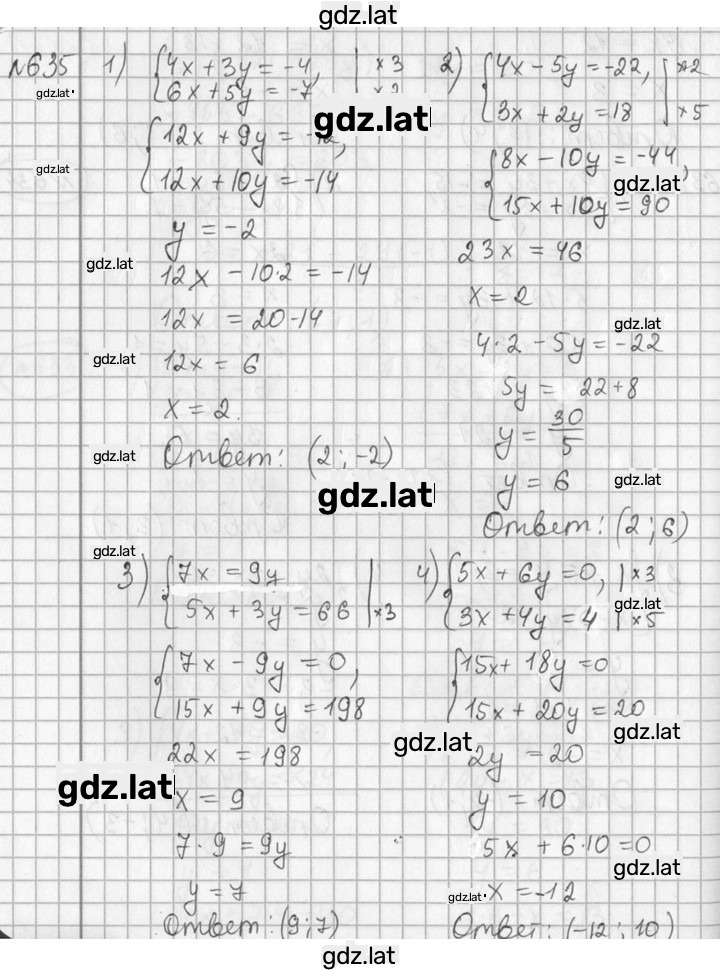 gdz.lat
№635 1) {4x + 3y = -4, | ×3
{6x + 5y = -7
gdz.lat
gdz.lat
{12x + 9y =
{12x + 10y = -14
gdz.lat
y = -2
gdz.lat
12x - 10·2 = -14
12x = 20-14
12x = 6
gdz.lat
x = 2.
gdz.lat
Ответ: (2; -2)
gdz.lat
2) {4x - 5y = -22, | ×2
{3x + 2y = 18 | ×5
{8x - 10y = -44,
gdz.lat
{15x + 10y = 90
23x = 46
x = 2
gdz.lat
4·2 - 5y = -22
5y = 22+8
y = 30/5
y = 6
gdz.lat
Ответ: (2; 6)
gdz.lat
3) {7x = 9y
{5x + 3y = 66 | ×3
{7x - 9y = 0,
{15x + 9y = 198
22x = 198
gdz.lat
x = 9
7·9 = 9y
y = 7
Ответ: (9; 7)
4) {5x + 6y = 0, | ×3
gdz.lat
{3x + 4y = 4 | ×5
{15x + 18y = 0
{15x + 20y = 20
gdz.lat
gdz.lat
2y = 20
y = 10
5x + 6·10 = 0
gdz.lat
gdz.lat
x = -12
Ответ: (-12; 10)
gdz.lat